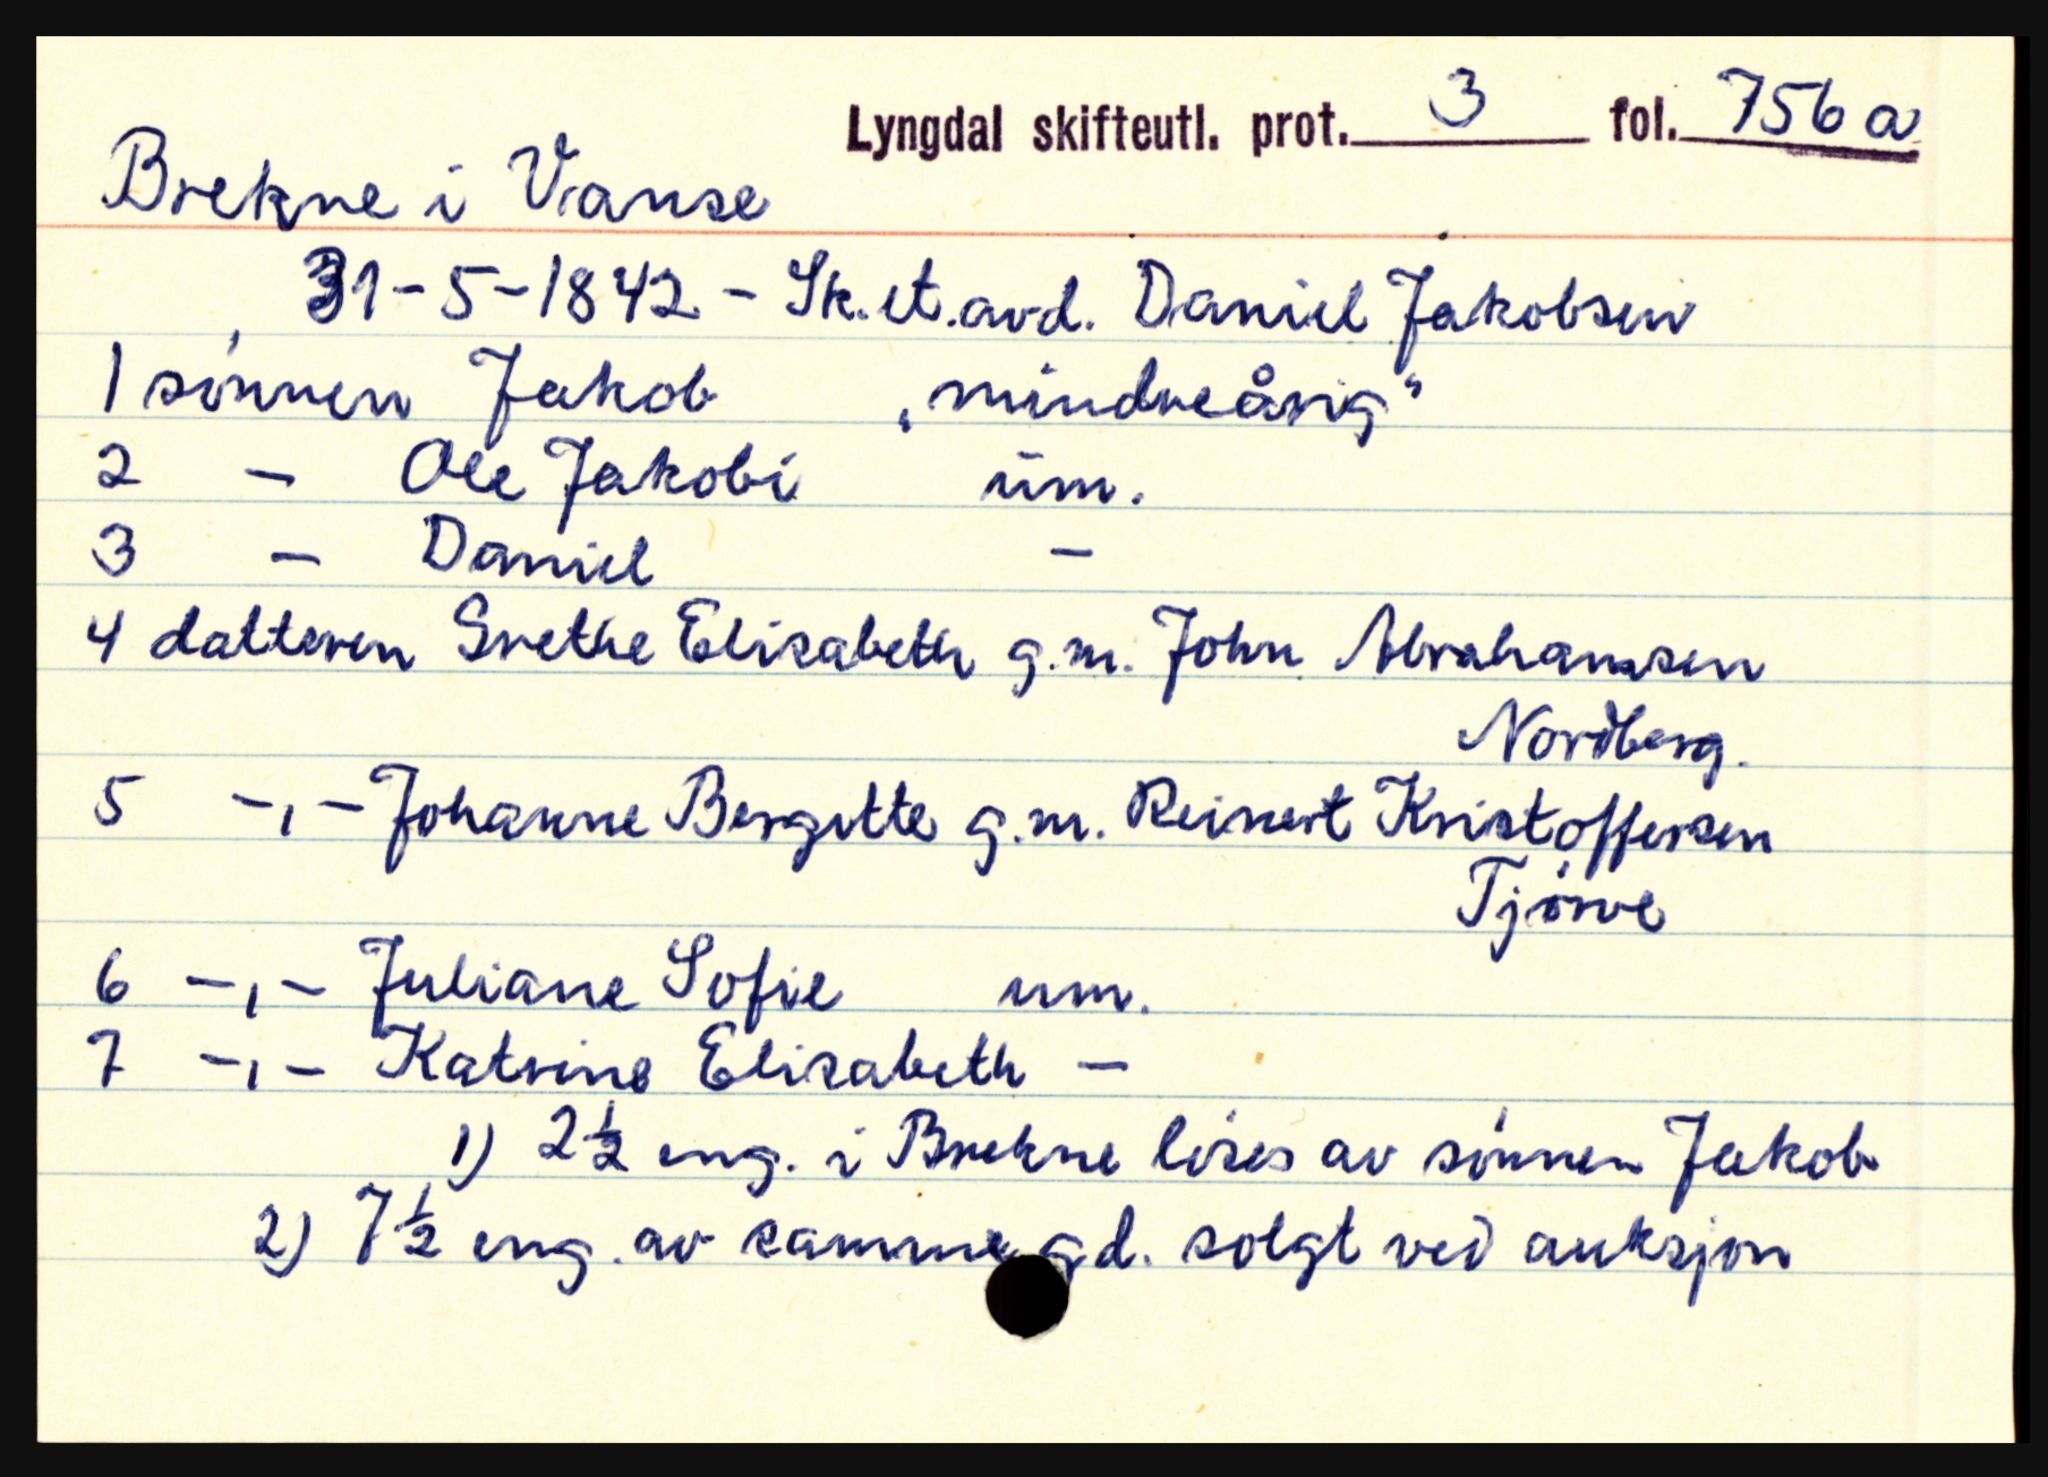 Lyngdal skifteutl. prot. 3 fol. 756 a
Brekne i Vanse
31-5-1842 - Sk. et. avd. Daniel Jakobsen
1 sønnen Jakob „mindreårig“
2 — Ole Jakobi um.
3 — Daniel —
4 datteren Grethe Elisabeth g.m. John Abrahamsen
Nordberg.
5 -,- Johanne Bergitte g.m. Reinert Kristoffersen
Tjørve
6 -,- Juliane Sofie um.
7 -,- Katrine Elisabeth —
1) 2½ eng. i Brekne løses av sønnen Jakob
2) 7½ eng. av samme gd. solgt ved auksjon